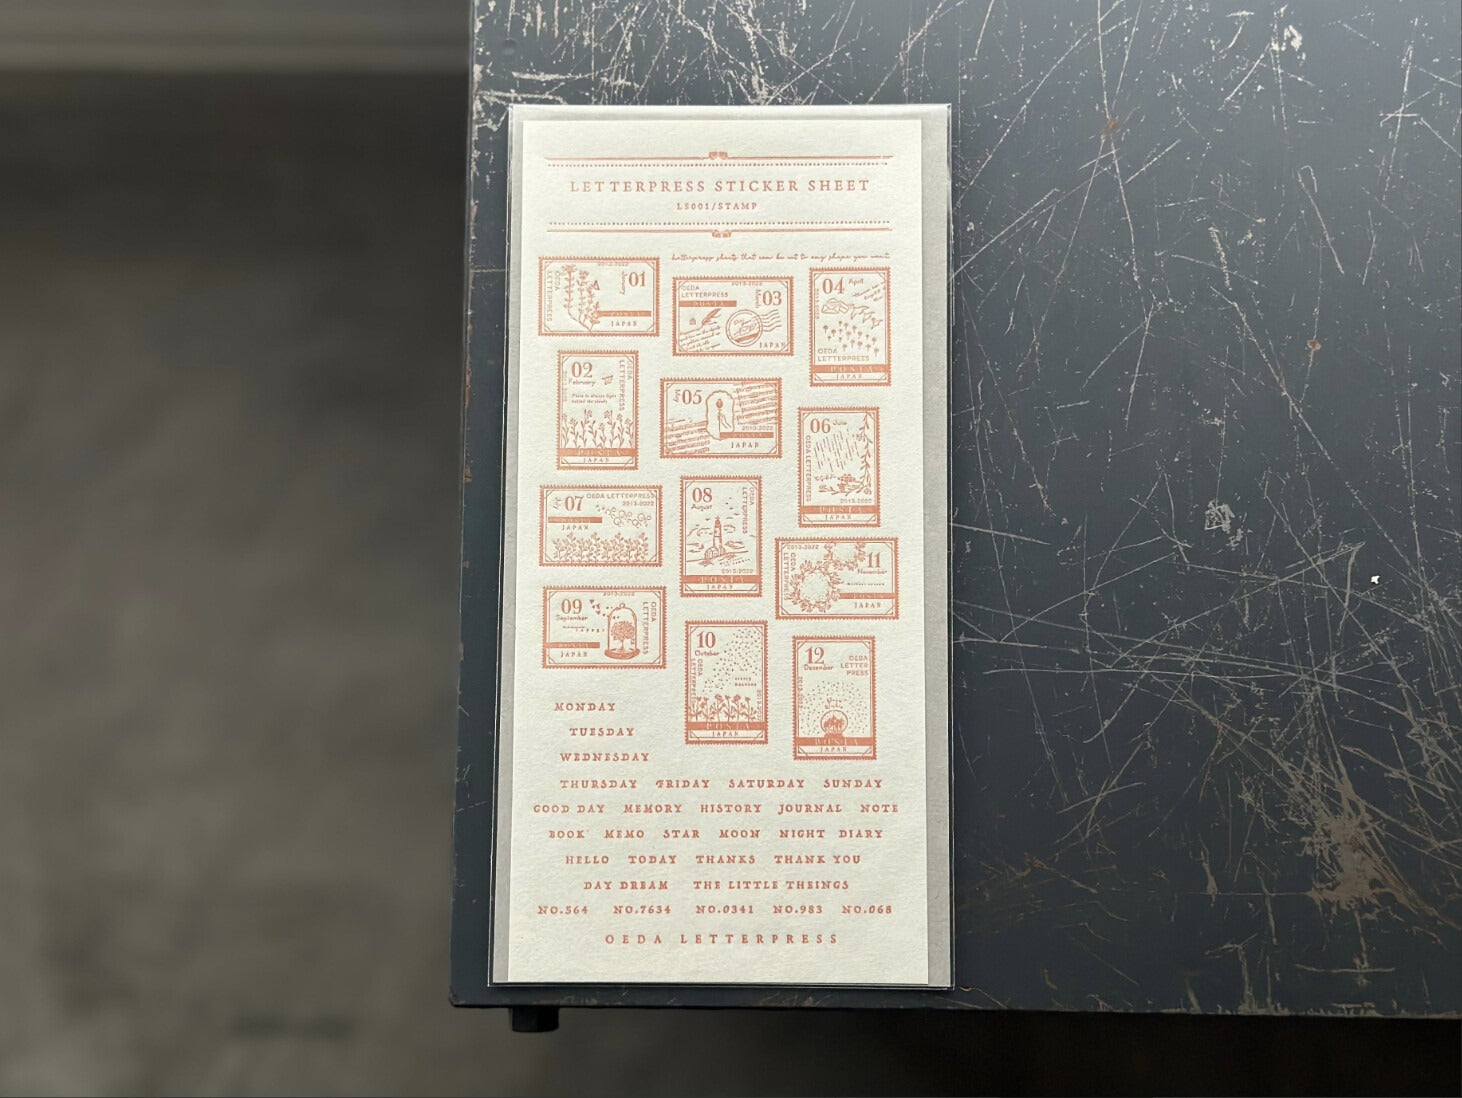 LETTERPRESS STICKER SHEET
LS001/STAMP
Letterpress sheets that can be cut to any shape you want.
2013-2022
01
January
OEDA
LETTERPRESS
POSTA
JAPAN
2013-2022
OEDA
LETTERPRESS
03
March
POSTA
JAPAN
04 April
OEDA
LETTERPRESS
POSTA
JAPAN
02
February
OEDA
LETTERPRESS
There is always light
behind the clouds
POSTA
JAPAN
05
2013-2022
POSTA
JAPAN
06 June
OEDA
LETTERPRESS
2013-2022
POSTA
JAPAN
07
OEDA LETTERPRESS
2013-2022
POSTA
JAPAN
08
August
OEDA
LETTERPRESS
2013-2022
POSTA
JAPAN
2013-2022
11
November
OEDA
LETTERPRESS
POSTA
JAPAN
2013-2022
09
September
OEDA
LETTERPRESS
POSTA
JAPAN
10
October
OEDA
LETTERPRESS
POSTA
JAPAN
12
December
OEDA
LETTER
PRESS
POSTA
JAPAN
MONDAY
TUESDAY
WEDNESDAY
THURSDAY FRIDAY SATURDAY SUNDAY
GOOD DAY MEMORY HISTORY JOURNAL NOTE
BOOK MEMO STAR MOON NIGHT DIARY
HELLO TODAY THANKS THANK YOU
DAY DREAM THE LITTLE THEINGS
NO.564 NO.7634 NO.0341 NO.983 NO.068
OEDA LETTERPRESS